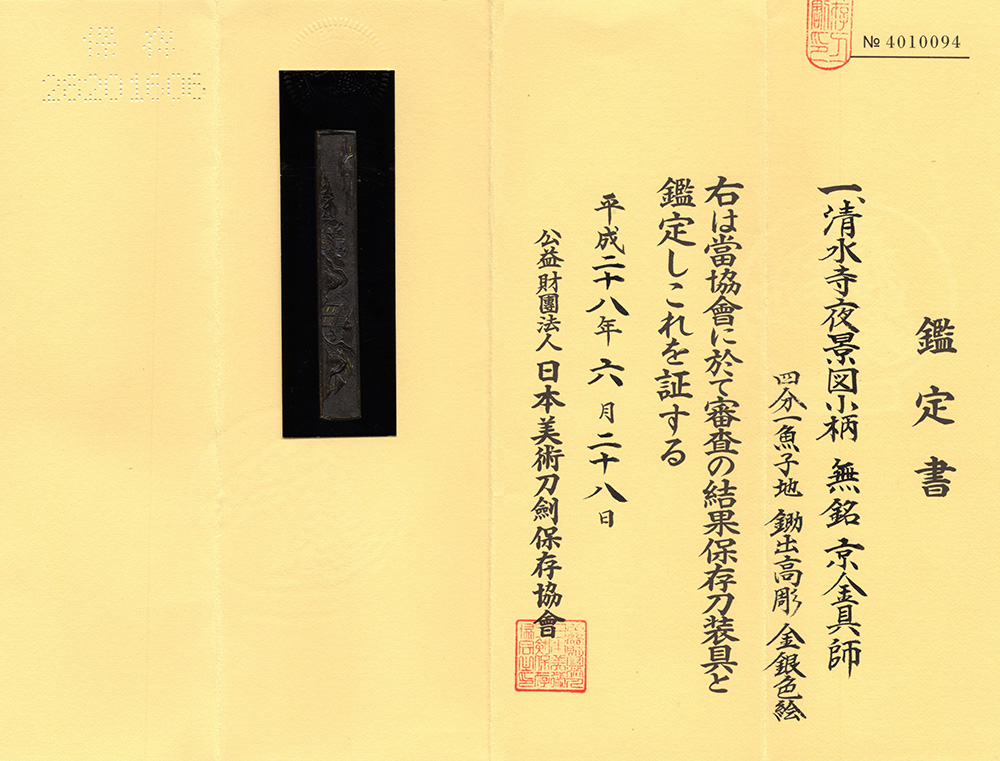 № 4010094
鑑定書
一、清水寺夜景図小柄 無銘 京金具師
四分一魚子地 鋤出高彫 金銀色絵
右は當協會に於て審査の結果保存刀装具と
鑑定しこれを証する
平成二十八年六月二十八日
公益財團法人 日本美術刀劍保存協會
保存
28201606